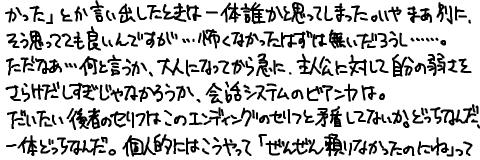 かった」とか言い出したときは一体誰かと思ってしまった。いやまあ別に、
そう思ってても良いんですが…怖くなかったはずは無いだろうし……。
ただなあ…何と言うか、大人になってから急に、主人公に対して自分の弱さを
さらけだしすぎじゃなかろうか、会話システムのビアンカは。
だいたい後者のセリフはこのエンディングのセリフと矛盾してないか。どっちなんだ、
一体どっちなんだ。個人的にはこうやって「ぜんぜん頼りなかったのにね」って